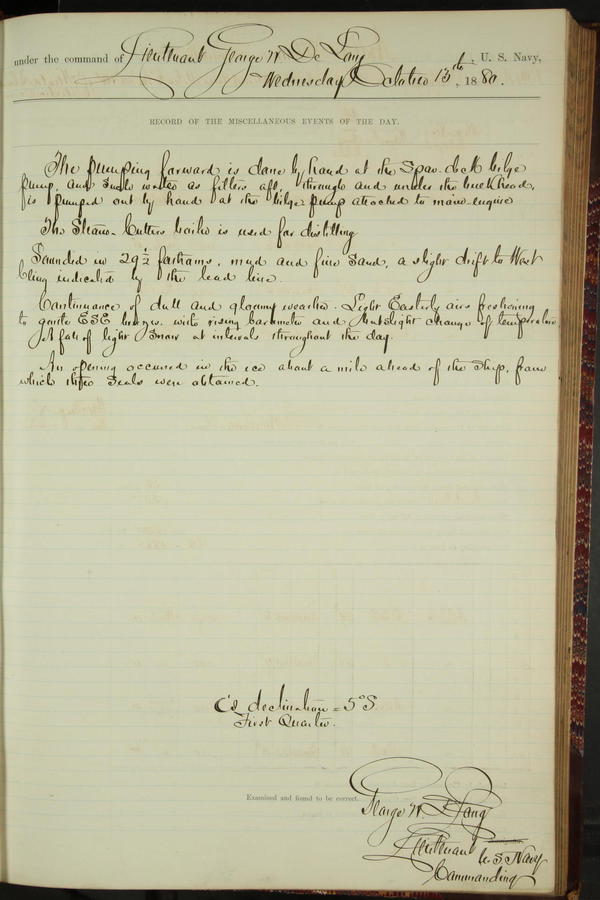 under the command of Lieutenant George W. De Long, U. S. Navy,
Wednesday October 13th, 1880.
RECORD OF THE MISCELLANEOUS EVENTS OF THE DAY.
The pumping forward is done by hand at the Spar-deck bilge
pump, and such water as filters aft, through and under the bulkhead,
is pumped out by hand at the bilge pump attached to main engine
The Steam-Cutters boiler is used for distilling
Sounded in 29 1/2 fathoms, mud and fine sand, a slight drift to West
being indicated by the lead line.
Continuance of dull and gloomy weather. Light Easterly airs freshening
to gentle ESE breezes, with rising barometer and but slight change of temperature
A fall of light snow at intervals throughout the day.
An opening occurred in the ice about a mile ahead of the Ship, from
which three Seals were obtained.
☾'s declination = 5° S.
First Quarter.
Examined and found to be correct.
George W. De Long
Lieutenant U.S. Navy
Commanding